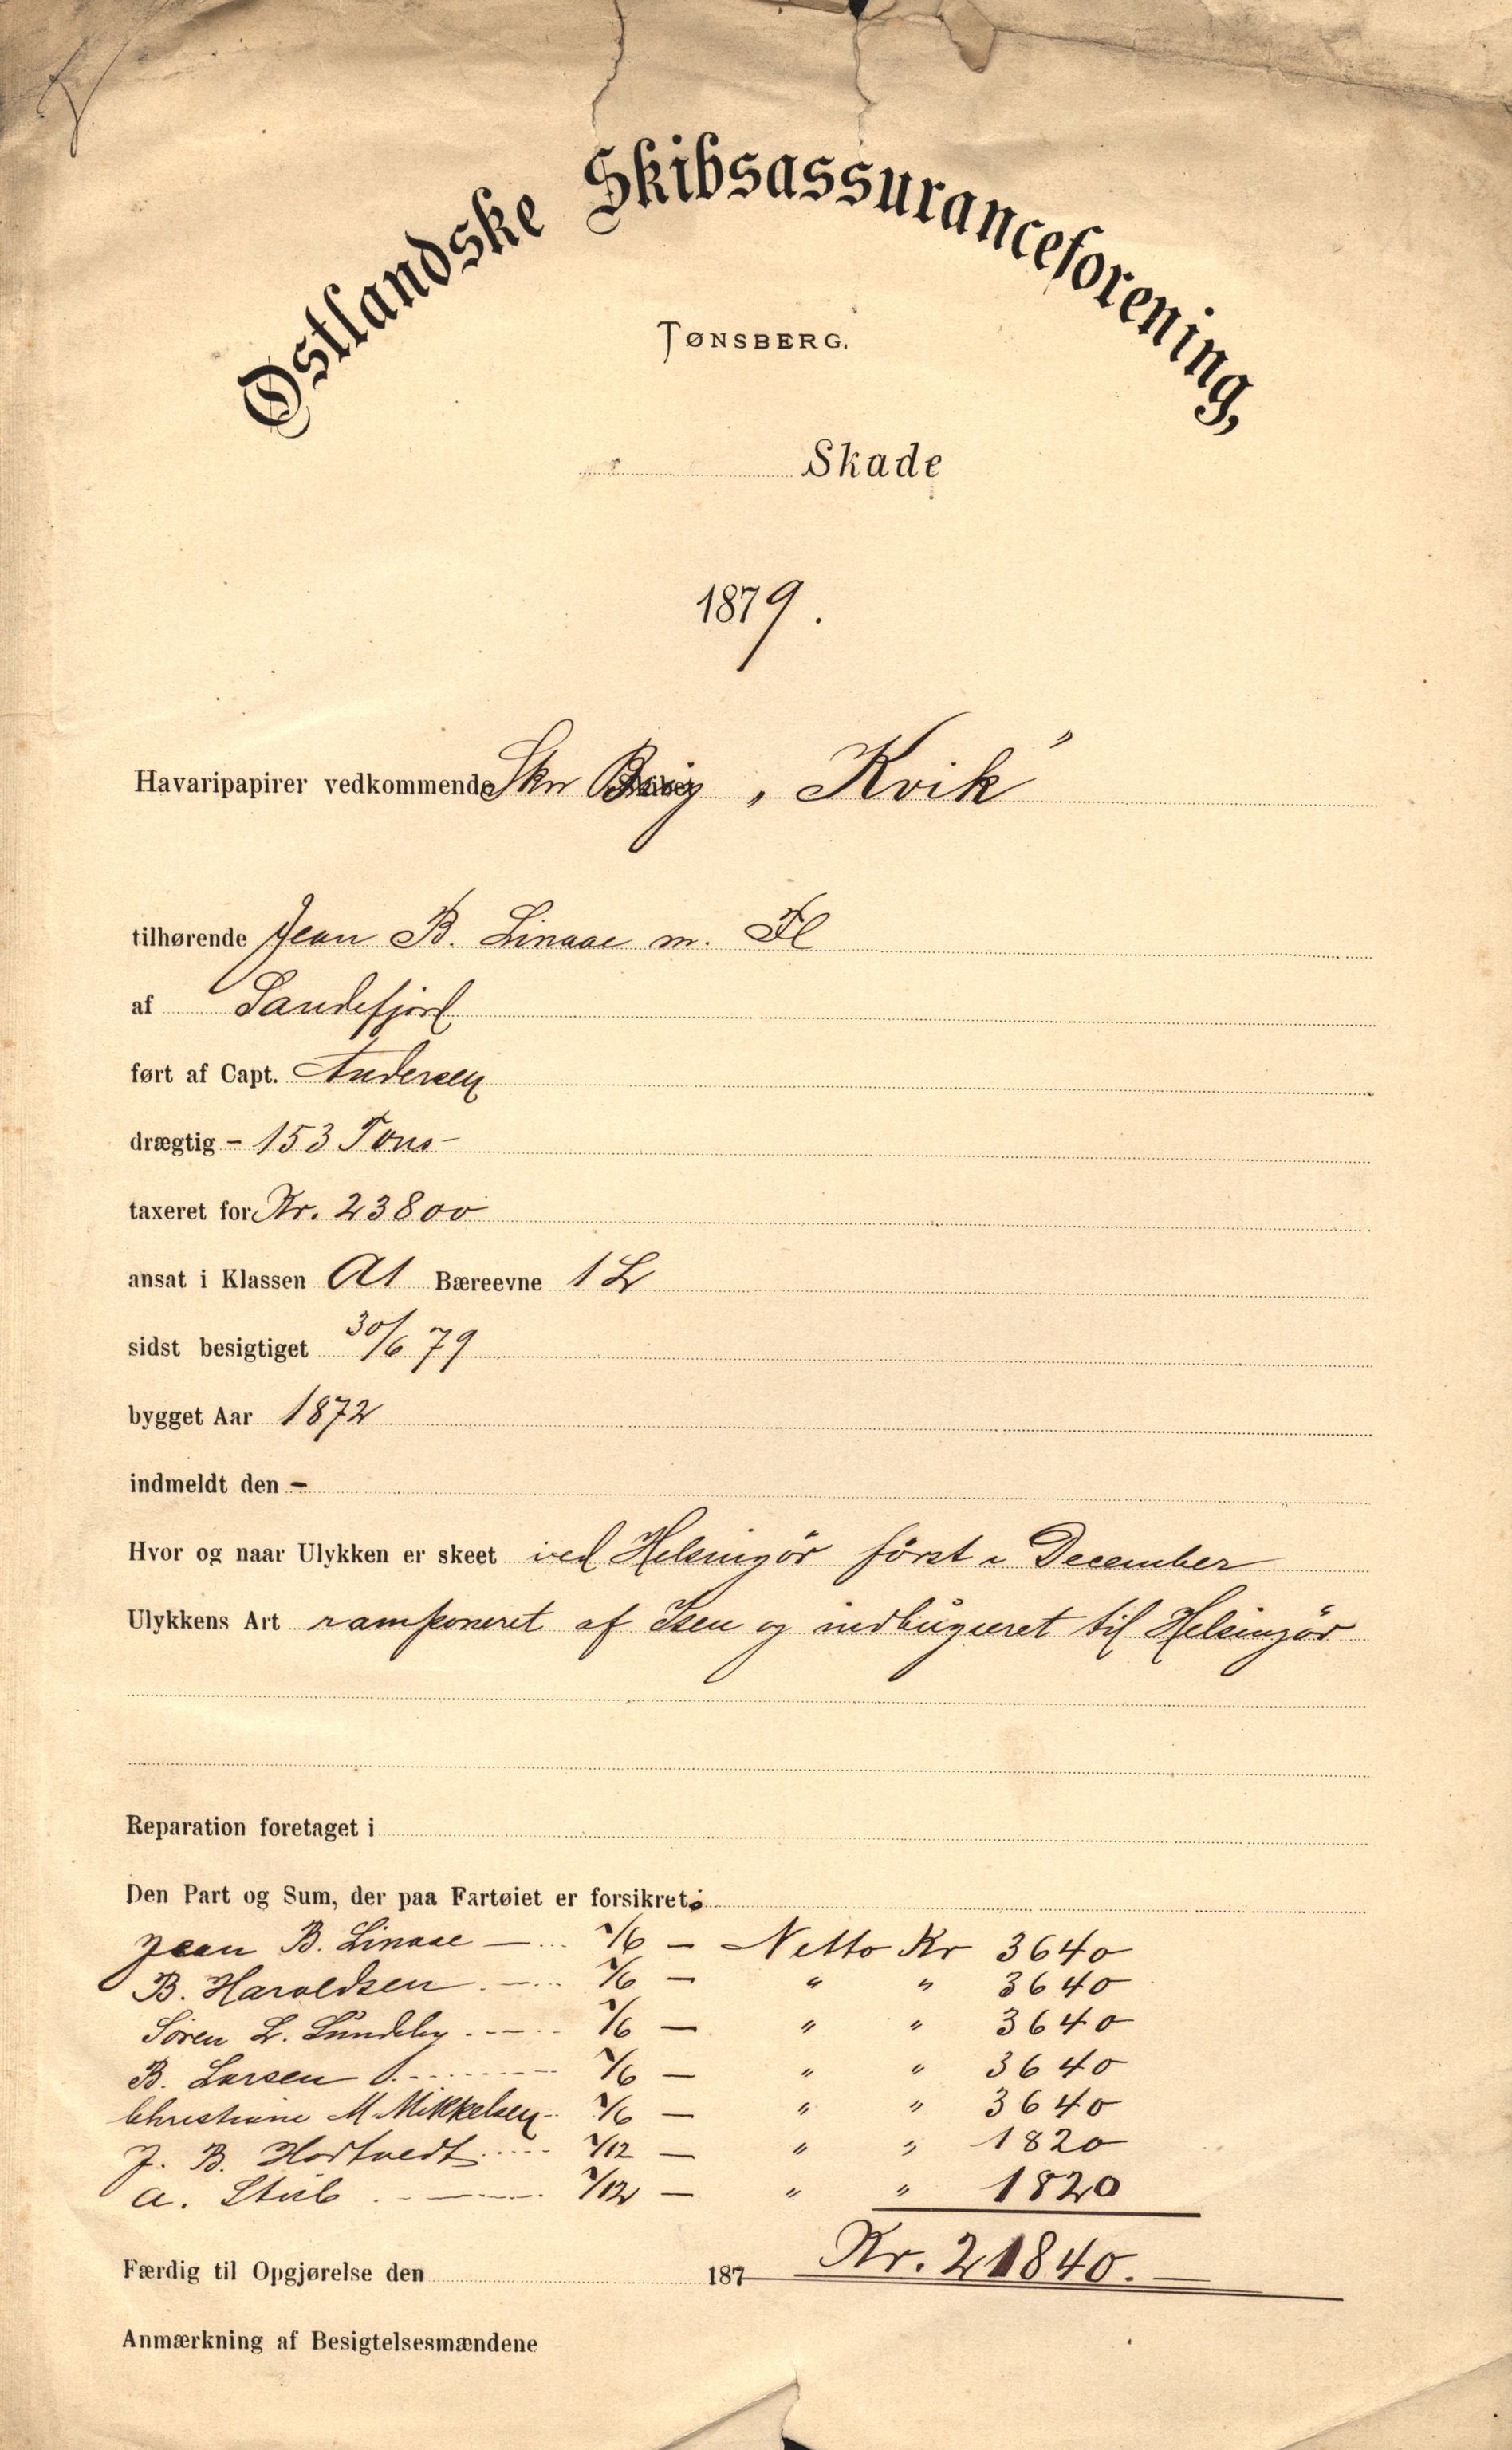 Østlandske Skibsassuranceforening,
TØNSBERG.
Skade
1879.
Havaripapirer vedkommende Skn Brig „Kvik”
tilhørende Jean B. Linaae m. Fl
af Sandefjord
ført af Capt. Andersen
drægtig - 153 Tons -
taxeret for Kr. 23800
ansat i Klassen A1 Bæreevne 1 L
sidst besigtiget 30/6 79
bygget Aar 1872
indmeldt den -
Hvor og naar Ulykken er skeet ved Helsingör först i December
Ulykkens Art ramponeret af Isen og indbugseret til Helsingör
Reparation foretaget i
Den Part og Sum, der paa Fartøiet er forsikret:
Jean B. Linaae — 1/6 — Netto Kr 3640
B. Haraldsen — 1/6 — " " 3640
Sören L. Lundeby — 1/6 — " " 3640
B. Larsen — 1/6 — " " 3640
Christiane M. Mikkelsen 1/6 — " " 3640
J. B. Hortvedt 1/12 — " " 1820
A. Stub — 1/12 — " " 1820
Færdig til Opgjørelse den 187 Kr. 21840.—
Anmærkning af Besigtelsesmændene